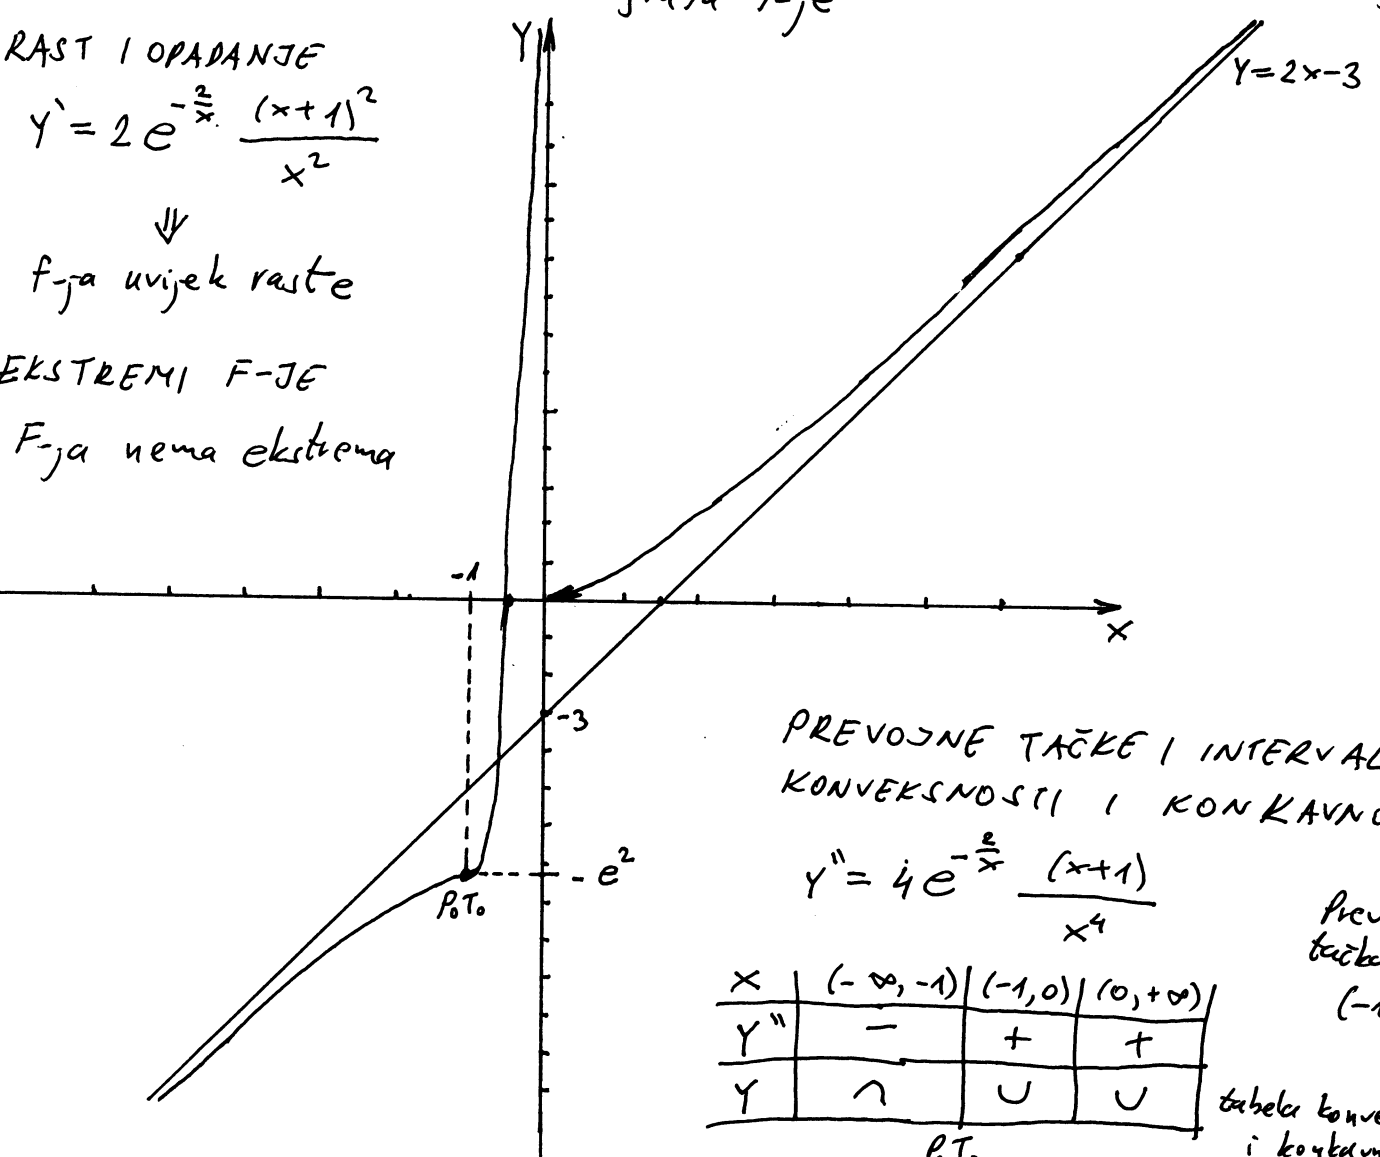 grafa f-je
RAST I OPADANJE
Y` = 2 e^{-2/x} (x+1)^2 / x^2
⇓
f-ja uvijek raste
EKSTREMI F-JE
F-ja nema ekstrema
Y
Y=2x-3
-1
X
-3
- e^2
P.T.
PREVOJNE TAČKE I INTERVAL
KONVEKSNOSTI I KONKAVNO
Y" = 4 e^{-2/x} (x+1) / x^4
Prev
tačka
(-1
X | (-∞,-1) | (-1,0) | (0,+∞)
Y" | - | + | +
Y | ∩ | ∪ | ∪
P.T.
tabela konve
i konkavn